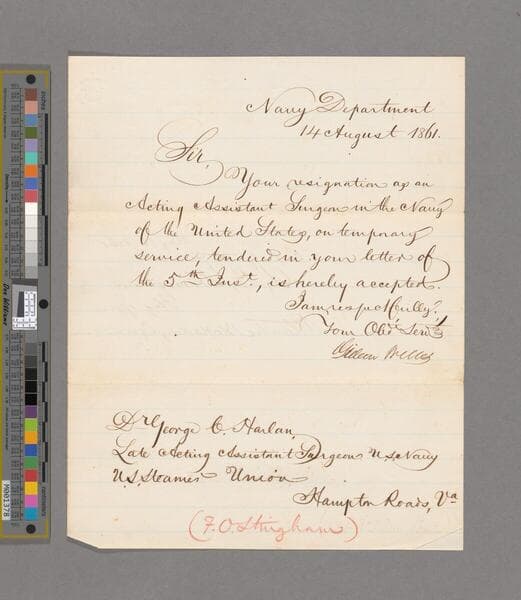 Navy Department
14 August 1861.
Sir,
Your resignation as an
Acting Assistant Surgeon in the Navy
of the United States, on temporary
service, tendered in your letter of
the 5th Inst., is hereby accepted.
I am respectfully,
Your Obt. Servt.
Gideon Welles
Dr George C Harlan,
Late Acting Assistant Surgeon U.S. Navy
U.S. Steamer Union
Hampton Roads, Va
(F. O. Stringham)
M001378